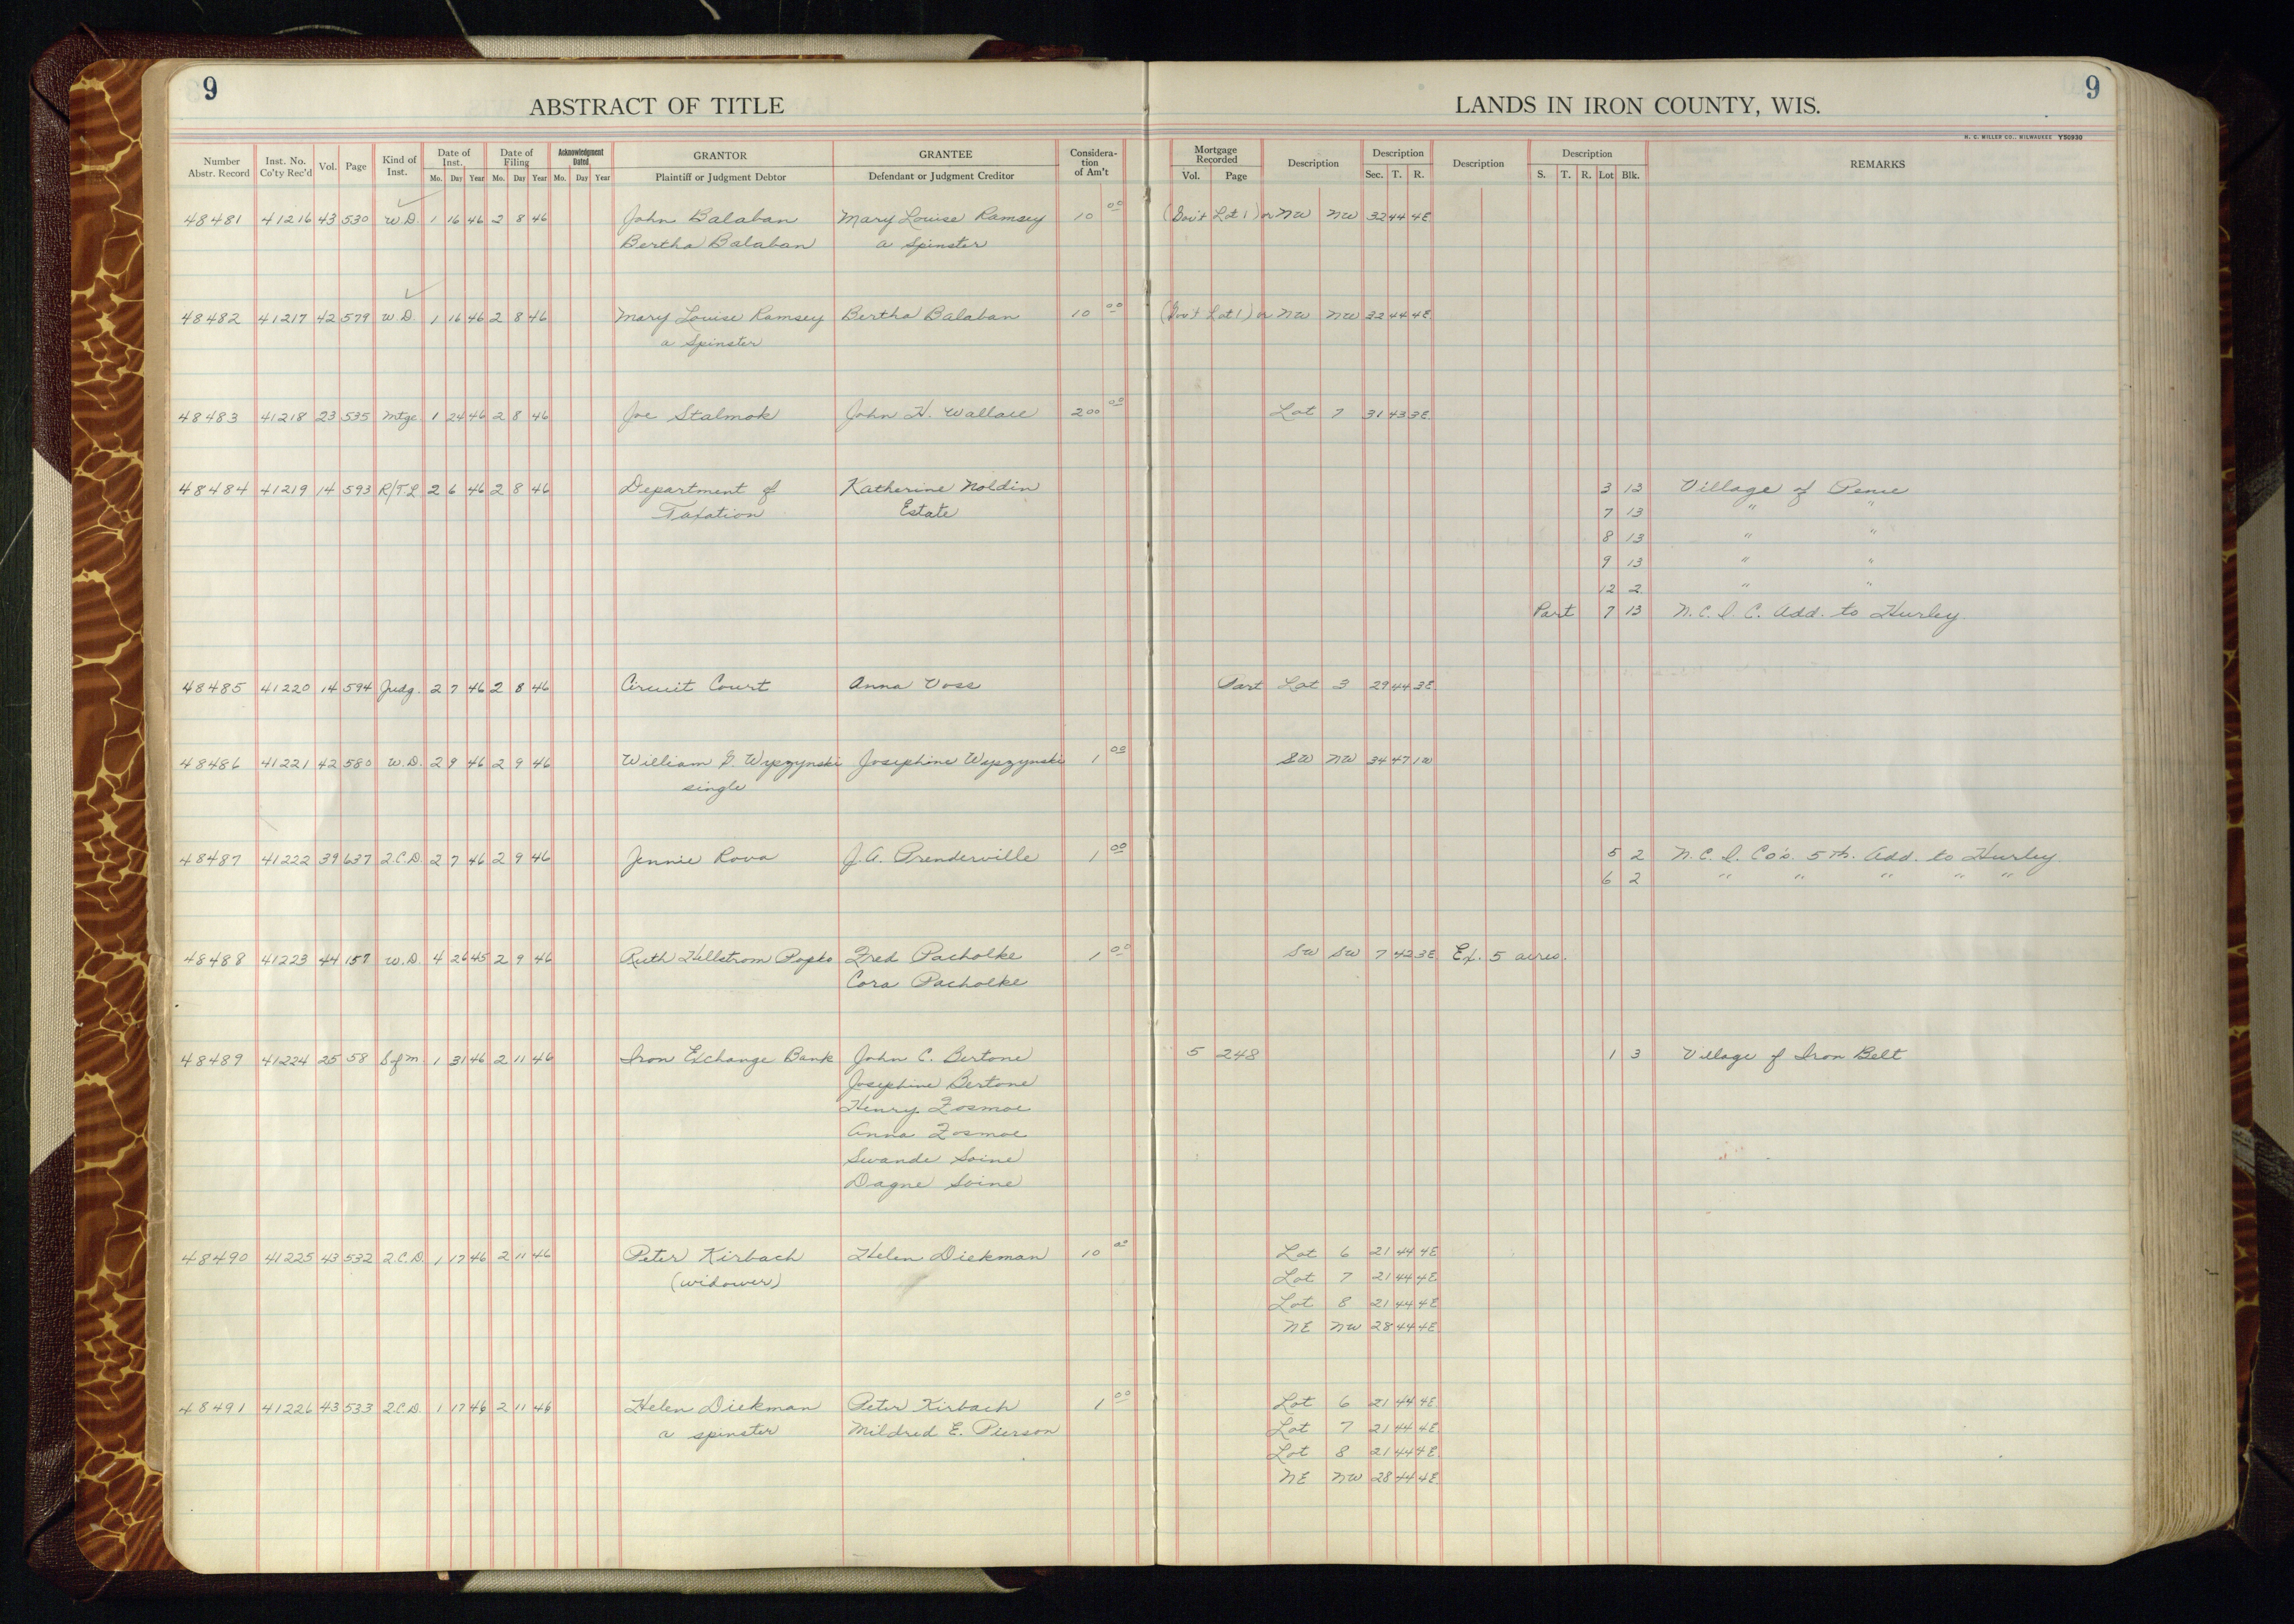 9
ABSTRACT OF TITLE
LANDS IN IRON COUNTY, WIS.
9
H. C. MILLER CO., MILWAUKEE Y50930
Number Abstr. Record Inst. No. Co'ty Rec'd Vol. Page Kind of Inst. Date of Inst. Mo. Day Year Date of Filing Mo. Day Year Acknowledgment Dated Mo. Day Year GRANTOR Plaintiff or Judgment Debtor GRANTEE Defendant or Judgment Creditor Consideration of Am't Mortgage Recorded Vol. Page Description Description Sec. T. R. Description Description S. T. R. Lot Blk. REMARKS
48481 41216 43 530 W.D. 1 16 46 2 8 46 John Balaban Mary Louise Ramsey 10 00 (Gov't Lot 1) or NW NW 32 44 4E
Bertha Balaban a Spinster
48482 41217 42 579 W.D. 1 16 46 2 8 46 Mary Louise Ramsey Bertha Balaban 10 00 (Gov't Lot 1) or NW NW 32 44 4E
a Spinster
48483 41218 23 535 Mtge 1 24 46 2 8 46 Joe Stalmok John H. Wallace 200 00 Lot 7 31 43 3E
48484 41219 14 593 R/T.L 2 6 46 2 8 46 Department of Katherine Noldin 3 13 Village of Pence
Taxation Estate 7 13 " "
8 13 " "
9 13 " "
12 2 " "
Part 7 13 N.C.I.C. Add. to Hurley
48485 41220 14 594 Judg. 2 7 46 2 8 46 Circuit Court Anna Voss Part Lot 3 29 44 3E
48486 41221 42 580 W.D. 2 9 46 2 9 46 William G. Wyszynski Josephine Wyszynski 1 00 SW NW 34 47 1W
single
48487 41222 39 637 2.C.D. 2 7 46 2 9 46 Jennie Rova J.A. Prenderville 1 00 5 2 N.C.I. Co's. 5th. Add. to Hurley
6 2 " " " " "
48488 41223 44 157 W.D. 4 26 45 2 9 46 Ruth Hellstrom Popko Fred Pacholke 1 00 SW SW 7 42 3E Ex. 5 acres.
Cora Pacholke
48489 41224 25 58 S of M 1 31 46 2 11 46 Iron Exchange Bank John C. Bertone 5 248 1 3 Village of Iron Belt
Josephine Bertone
Henry Fosmoe
Anna Fosmoe
Swande Soine
Dagne Soine
48490 41225 43 532 2.C.D. 1 17 46 2 11 46 Peter Kirbach Helen Diekman 10 00 Lot 6 21 44 4E
(widower) Lot 7 21 44 4E
Lot 8 21 44 4E
NE NW 28 44 4E
48491 41226 43 533 2.C.D. 1 17 46 2 11 46 Helen Diekman Peter Kirbach 1 00 Lot 6 21 44 4E
a spinster Mildred E. Pierson Lot 7 21 44 4E
Lot 8 21 44 4E
NE NW 28 44 4E